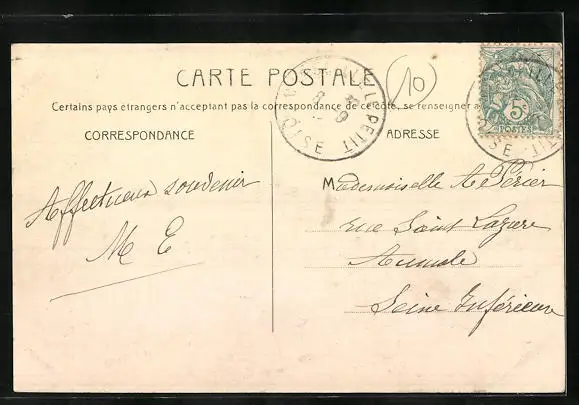 CARTE POSTALE
10
Certains pays étrangers n'acceptant pas la correspondance de ce côté, se renseigner a
CORRESPONDANCE
ADRESSE
5c
POSTES
LE PETIT
OISE
Affectueux souvenir
M E
Mademoiselle A Périer
rue Saint Lazare
Aumale
Seine Inférieure